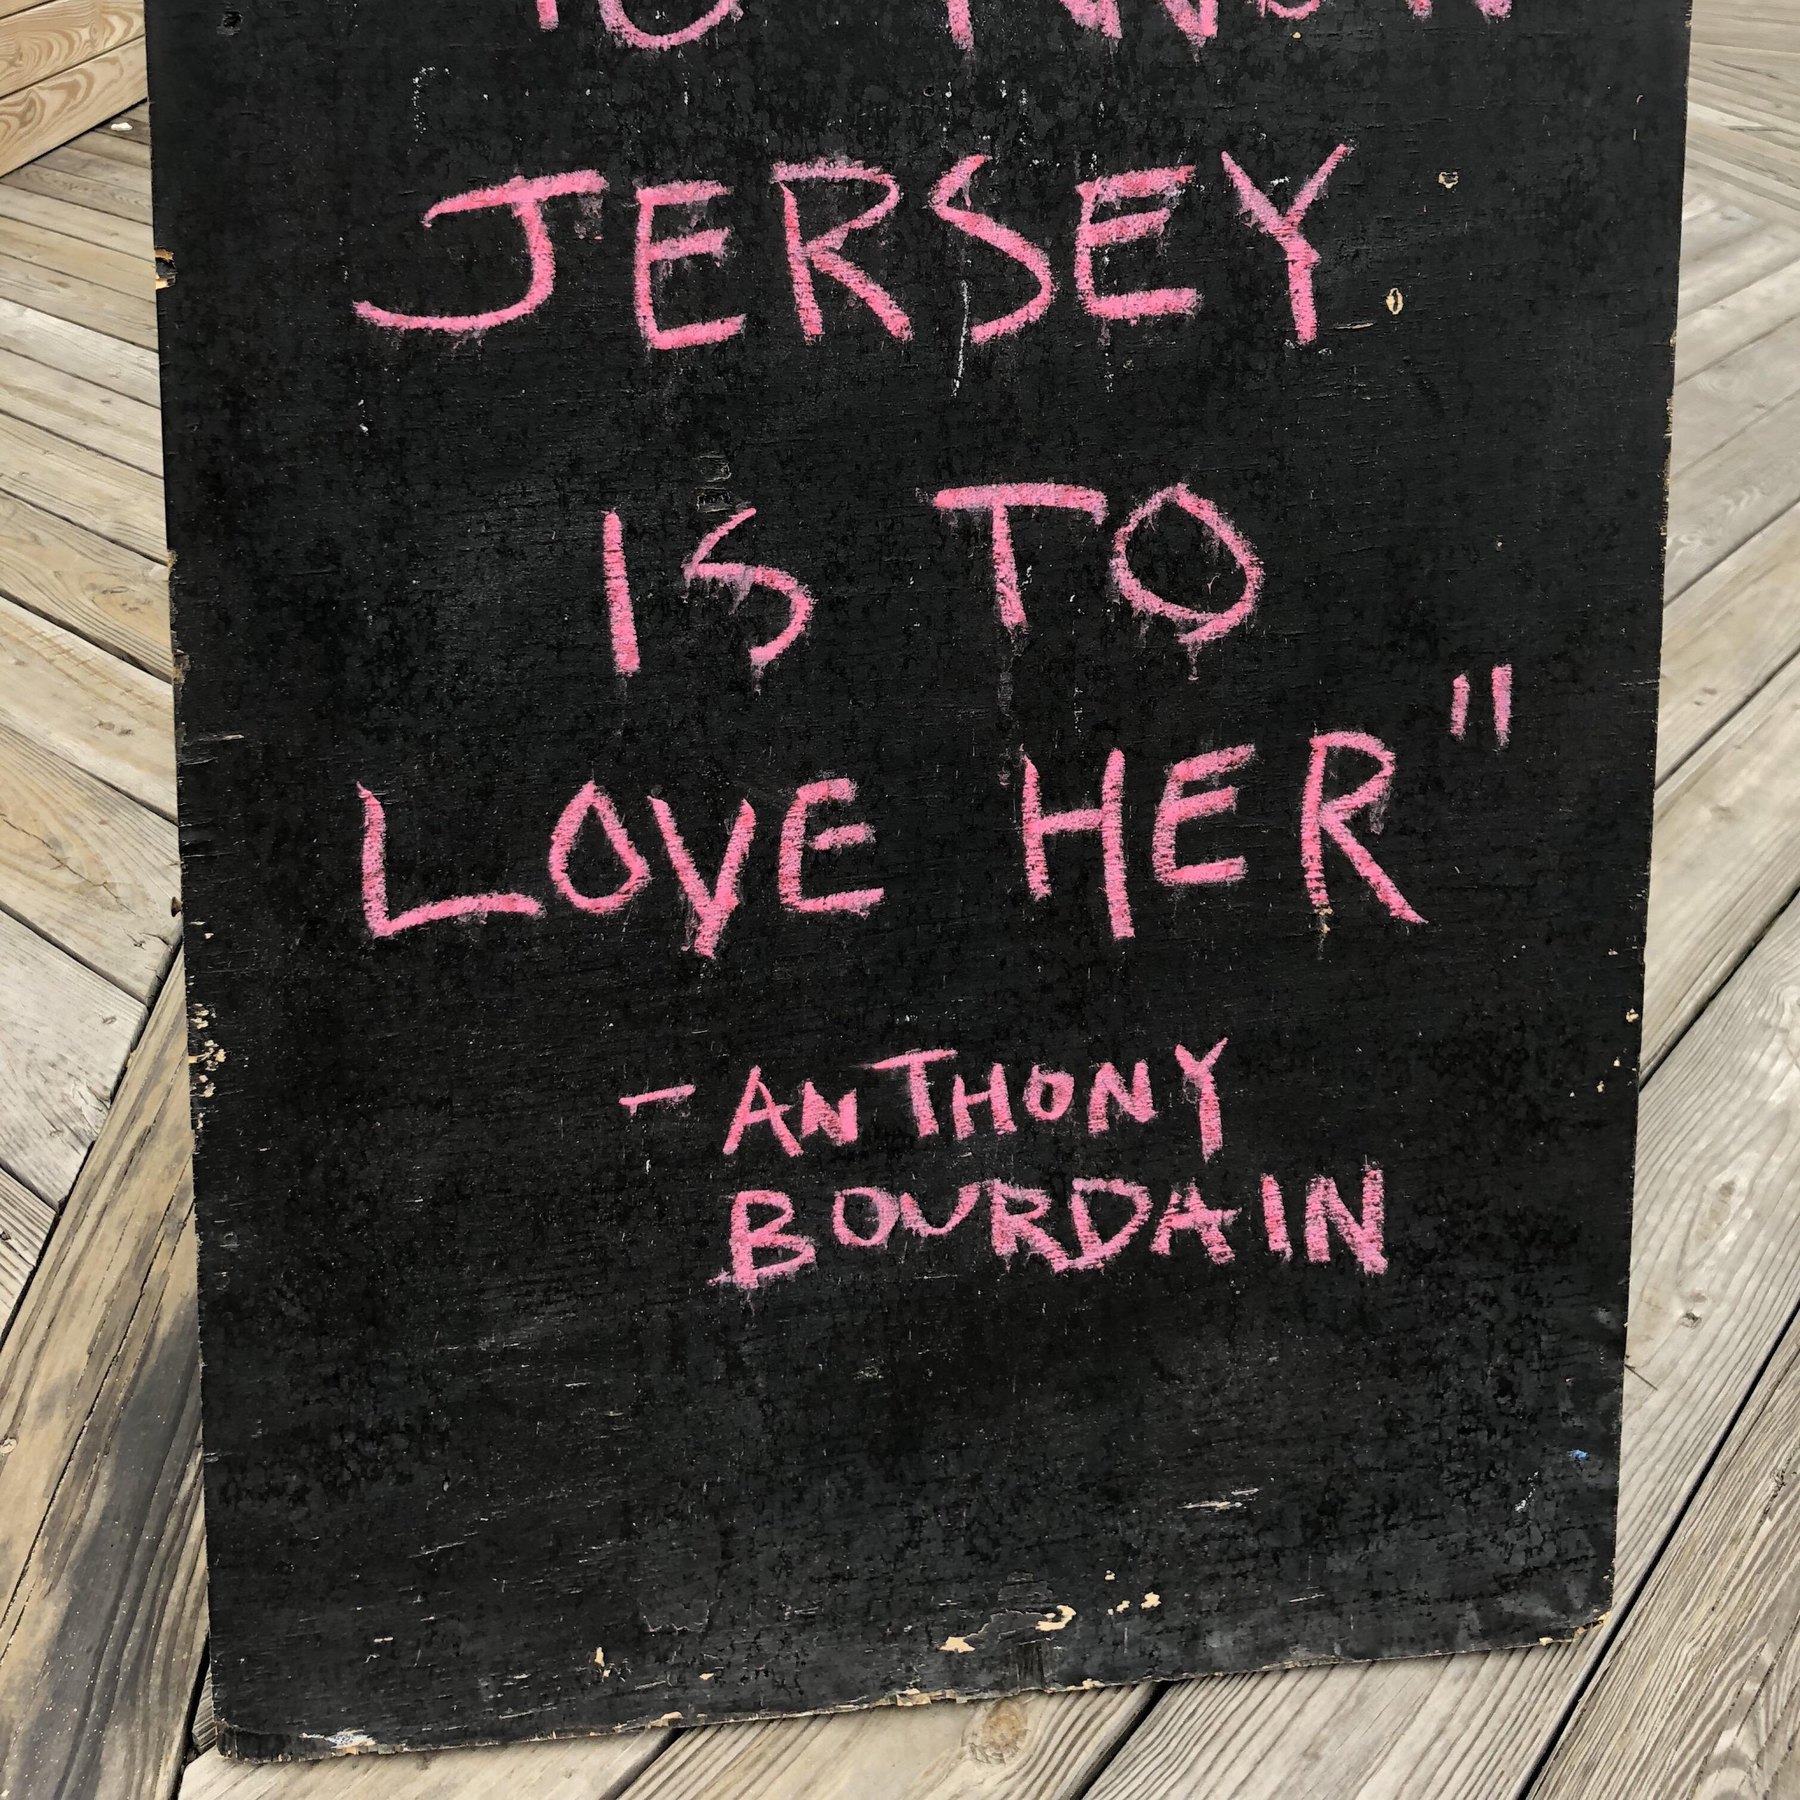 TO KNOW
JERSEY
IS TO
LOVE HER"
- ANTHONY
BOURDAIN